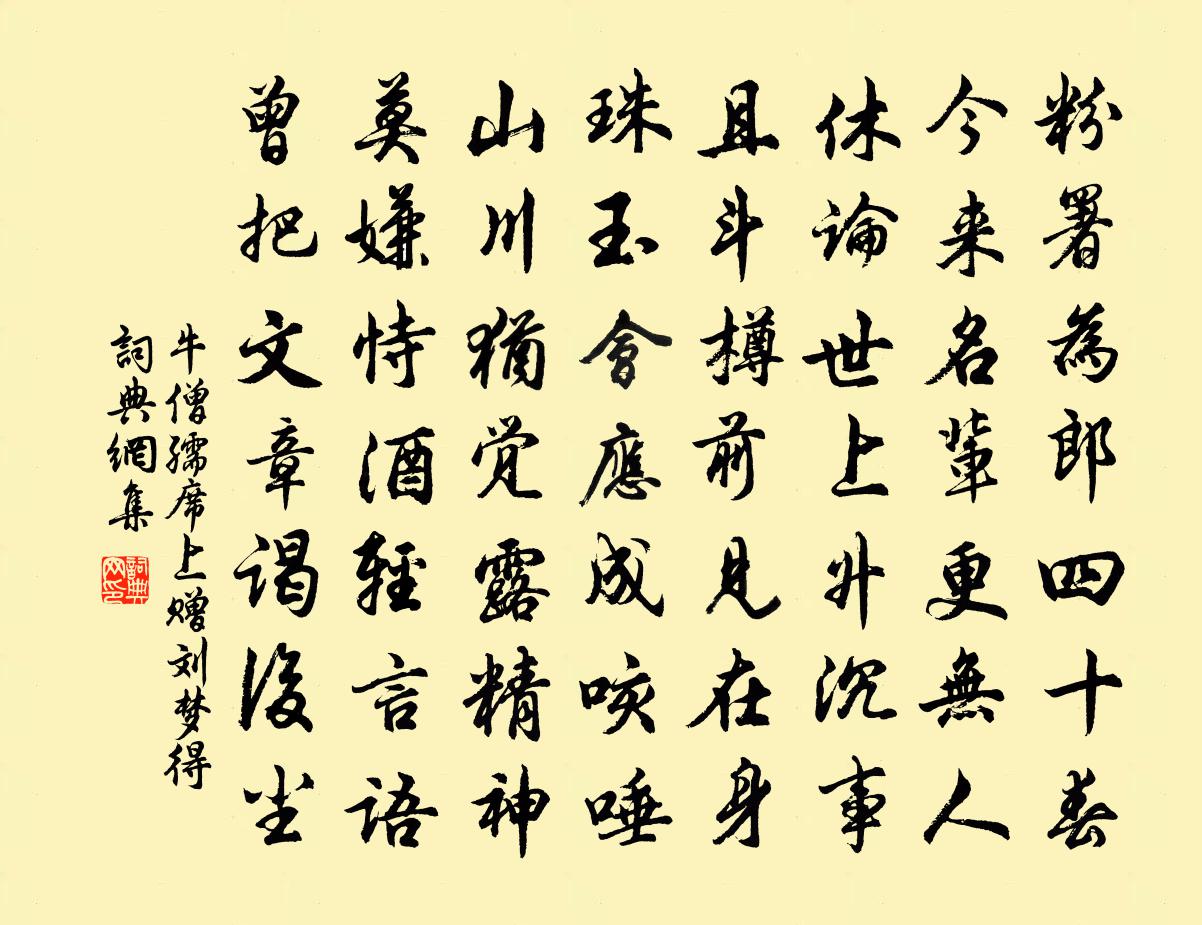 粉署為郎四十春
今来名輩更無人
休論世上升沉事
且斗樽前見在身
珠玉會應成咳唾
山川猶覺露精神
莫嫌恃酒輕言語
曾把文章謁後尘
牛僧孺席上赠刘梦得
詞典網集
詞典
网印